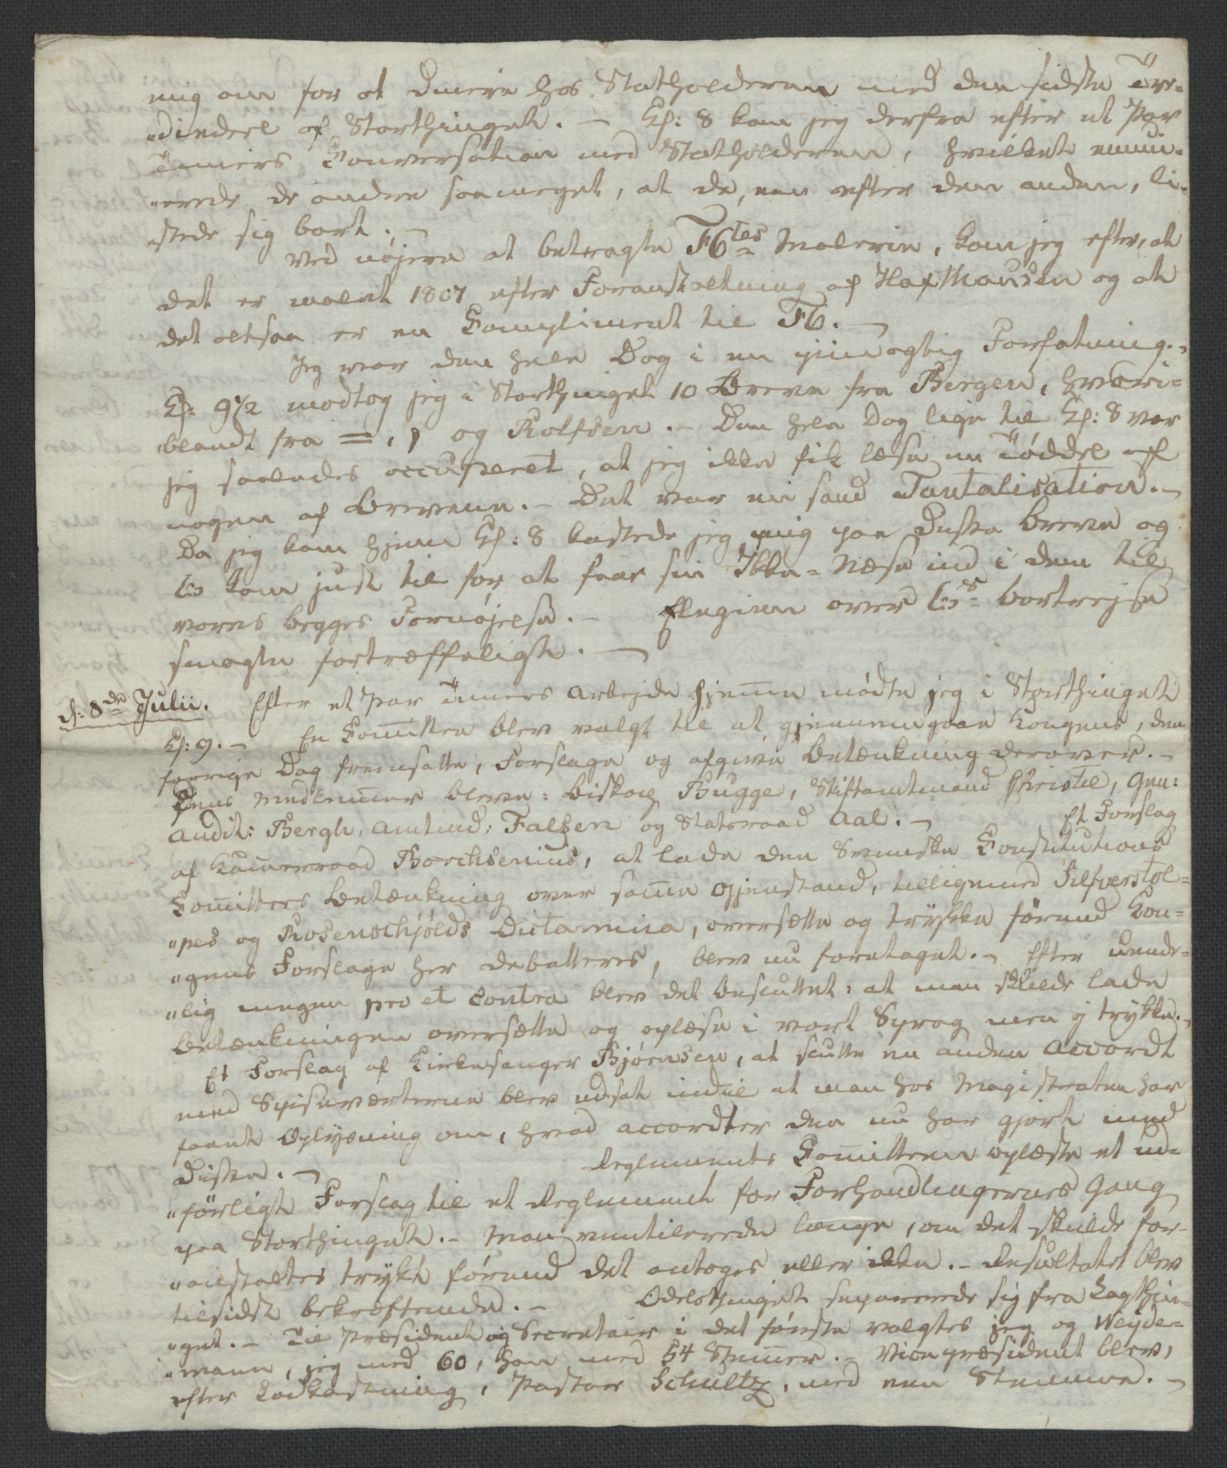 mig om for at dinere hos Statholderen med den sidste Tre-
„diendeel af Storthinget. – Kl: 8 kom jeg derfra efter et Par
Timers Conversation med Statholderen, hvilket ennui-
„erede de andre saameget, at de, een efter den anden, li-
stede sig bort. –
Ved nøjere at betragte F6tes Malerie, kom jeg efter, at
det er malet 1807 efter Foranstaltning af Haxthausen og at
det altsaa er en Compliment til F6. –
Jeg var den hele Dag i en Forfatning. –
Kl: 9½ modtog jeg i Storthinget 10 Breve fra Bergen, hvori-
blandt fra =, og Rolfsen. – Den hele Dag lige til Kl: 8 var
jeg saaledes occuperet, at jeg ikke fik læse en Tøddel af
nogen af Brevene. – Det var en sand Tantalisation. –
Da jeg kom hjem Kl: 8 kastede jeg mig paa Diske Breve og
kom just til for at faae sin Næse ind i dem til
vores begges Fornøjelse. – Elegien over bortrejse
smagte fortræffeligt. –
d: 8de Julii. Efter et Par Timers Arbejde hjemme mødte jeg i Storthinget
Kl: 9. – En Comittee blev valgt til at gjennemgaae Kongens, den
forrige Dag fremsatte, Forslage og afgive Betænkning derover. –
Dens Medlemmer bleve: Biskop Bugge, Stiftamtmand Christie, Gen:
Audit: Bergh, Amtmd: Falsen og Statsraad Aal. – Et Forslag
af Kammerraad Borchsenius, at lade den Svenske Constitutions
Comittees Betænkning over samme Gjenstand, tilligemed Silfverstol-
„pes og Rosenschjølds Dictamina, oversætte og trykke førend Kon-
„gens Forslage her debatteres, blev nu foretaget. – Efter uende-
„lig megen pro et contra blev det besluttet: at man skulde lade
Betænkningen oversætte og oplæse i vort Sprog men ej trykke. –
Et Forslag af Kirkesanger Bjørnsen, at slutte en anden Accordt
med Spiseværterne blev udsat indtil at man hos Magistraten har
faaet Oplysning om, hvad Accordter den nu har gjort med
Diske. – Reglements Comitteen oplæste et ud-
„førligt Forslag til et Reglement for Forhandlingernes Gang
paa Storthinget. – Man ventilerede længe, om det skulde for-
„anstaltes trykt førend det antoges eller ikke. – Resultatet blev
tilsidst bekræftende. – Odelsthinget separerede sig fra Lagthin-
„get. – Til Præsident og Secretair i det første valgtes jeg og Weide-
„mann, jeg med 60, han med 54 Stemmer. – Vicepræsident blev,
efter Lodkastning, Pastor Schultz, med een Stemme. –